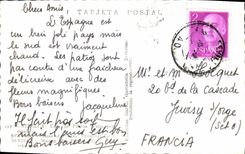 TARJETA POSTAL
Chers amis,
L'Espagne est
un très joli pays mais
le sud est vraiment
chaud. Les patios sont
par contre d'une fraîcheur
délicieuse avec des
fleurs magnifiques
Bons baisers
Jacqueline
Il fait pas soif!
mais l'avis est bon
Bons baisers Guy
Mr et Mme
2 bd de la Cascade
Juvisy s/orge
(S et O)
FRANCIA